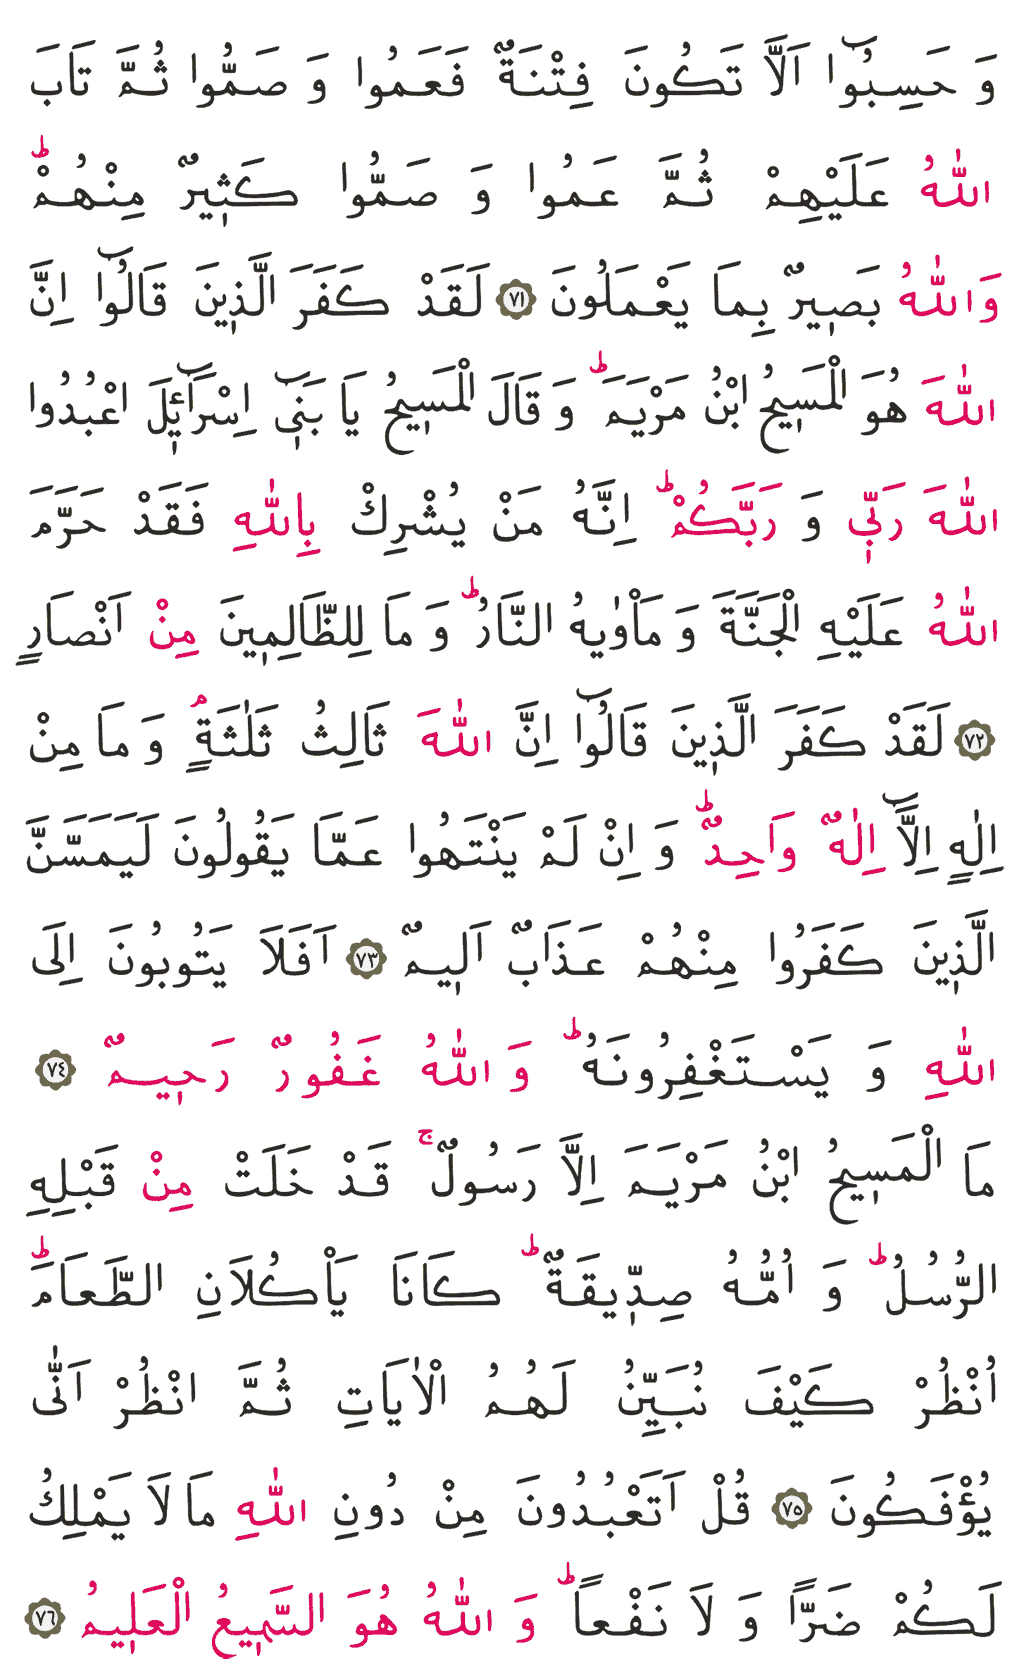 وَ حَسِبُٓوا اَلَّا تَكُونَ فِتْنَةٌ فَعَمُوا وَ صَمُّوا ثُمَّ تَابَ
اللّٰهُ عَلَيْهِمْ ثُمَّ عَمُوا وَ صَمُّوا كَثٖيرٌ مِنْهُمْؕ
وَاللّٰهُ بَصٖيرٌ بِمَا يَعْمَلُونَ ﴿٧١﴾ لَقَدْ كَفَرَ الَّذٖينَ قَالُٓوا اِنَّ
اللّٰهَ هُوَ الْمَسٖيحُ ابْنُ مَرْيَمَؕ وَ قَالَ الْمَسٖيحُ يَا بَنٖٓى اِسْرَٓائٖلَ اعْبُدُوا
اللّٰهَ رَبّٖى وَ رَبَّكُمْؕ اِنَّهُ مَنْ يُشْرِكْ بِاللّٰهِ فَقَدْ حَرَّمَ
اللّٰهُ عَلَيْهِ الْجَنَّةَ وَ مَاْوٰيهُ النَّارُؕ وَ مَا لِلظَّالِمٖينَ مِنْ اَنْصَارٍ
﴿٧٢﴾ لَقَدْ كَفَرَ الَّذٖينَ قَالُٓوا اِنَّ اللّٰهَ ثَالِثُ ثَلٰثَةٍۘ وَ مَا مِنْ
اِلٰهٍ اِلَّٓا اِلٰهٌ وَاحِدٌؕ وَ اِنْ لَمْ يَنْتَهُوا عَمَّا يَقُولُونَ لَيَمَسَّنَّ
الَّذٖينَ كَفَرُوا مِنْهُمْ عَذَابٌ اَلٖيمٌ ﴿٧٣﴾ اَفَلَا يَتُوبُونَ اِلَى
اللّٰهِ وَ يَسْتَغْفِرُونَهُؕ وَ اللّٰهُ غَفُورٌ رَحٖيمٌ ﴿٧٤﴾
مَا الْمَسٖيحُ ابْنُ مَرْيَمَ اِلَّا رَسُولٌۚ قَدْ خَلَتْ مِنْ قَبْلِهِ
الرُّسُلُؕ وَ اُمُّهُ صِدّٖيقَةٌؕ كَانَا يَاْكُلَانِ الطَّعَامَؕ
اُنْظُرْ كَيْفَ نُبَيِّنُ لَهُمُ الْاٰيَاتِ ثُمَّ انْظُرْ اَنّٰى
يُؤْفَكُونَ ﴿٧٥﴾ قُلْ اَتَعْبُدُونَ مِنْ دُونِ اللّٰهِ مَا لَا يَمْلِكُ
لَكُمْ ضَرًّا وَ لَا نَفْعاًؕ وَ اللّٰهُ هُوَ السَّمٖيعُ الْعَلٖيمُ ﴿٧٦﴾